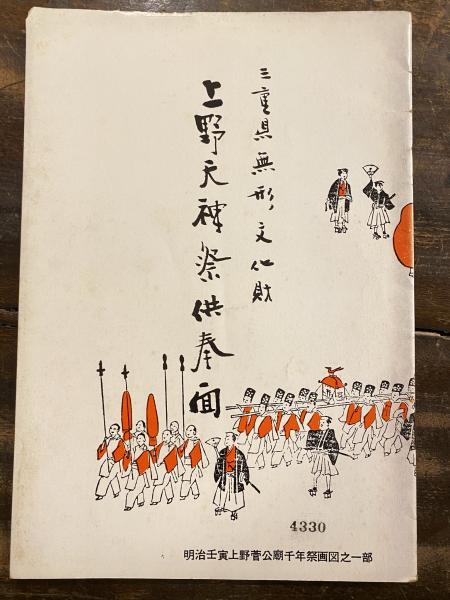 三重県無形文化財
上野天神祭供奉面
4330
明治壬寅上野菅公廟千年祭画図之一部